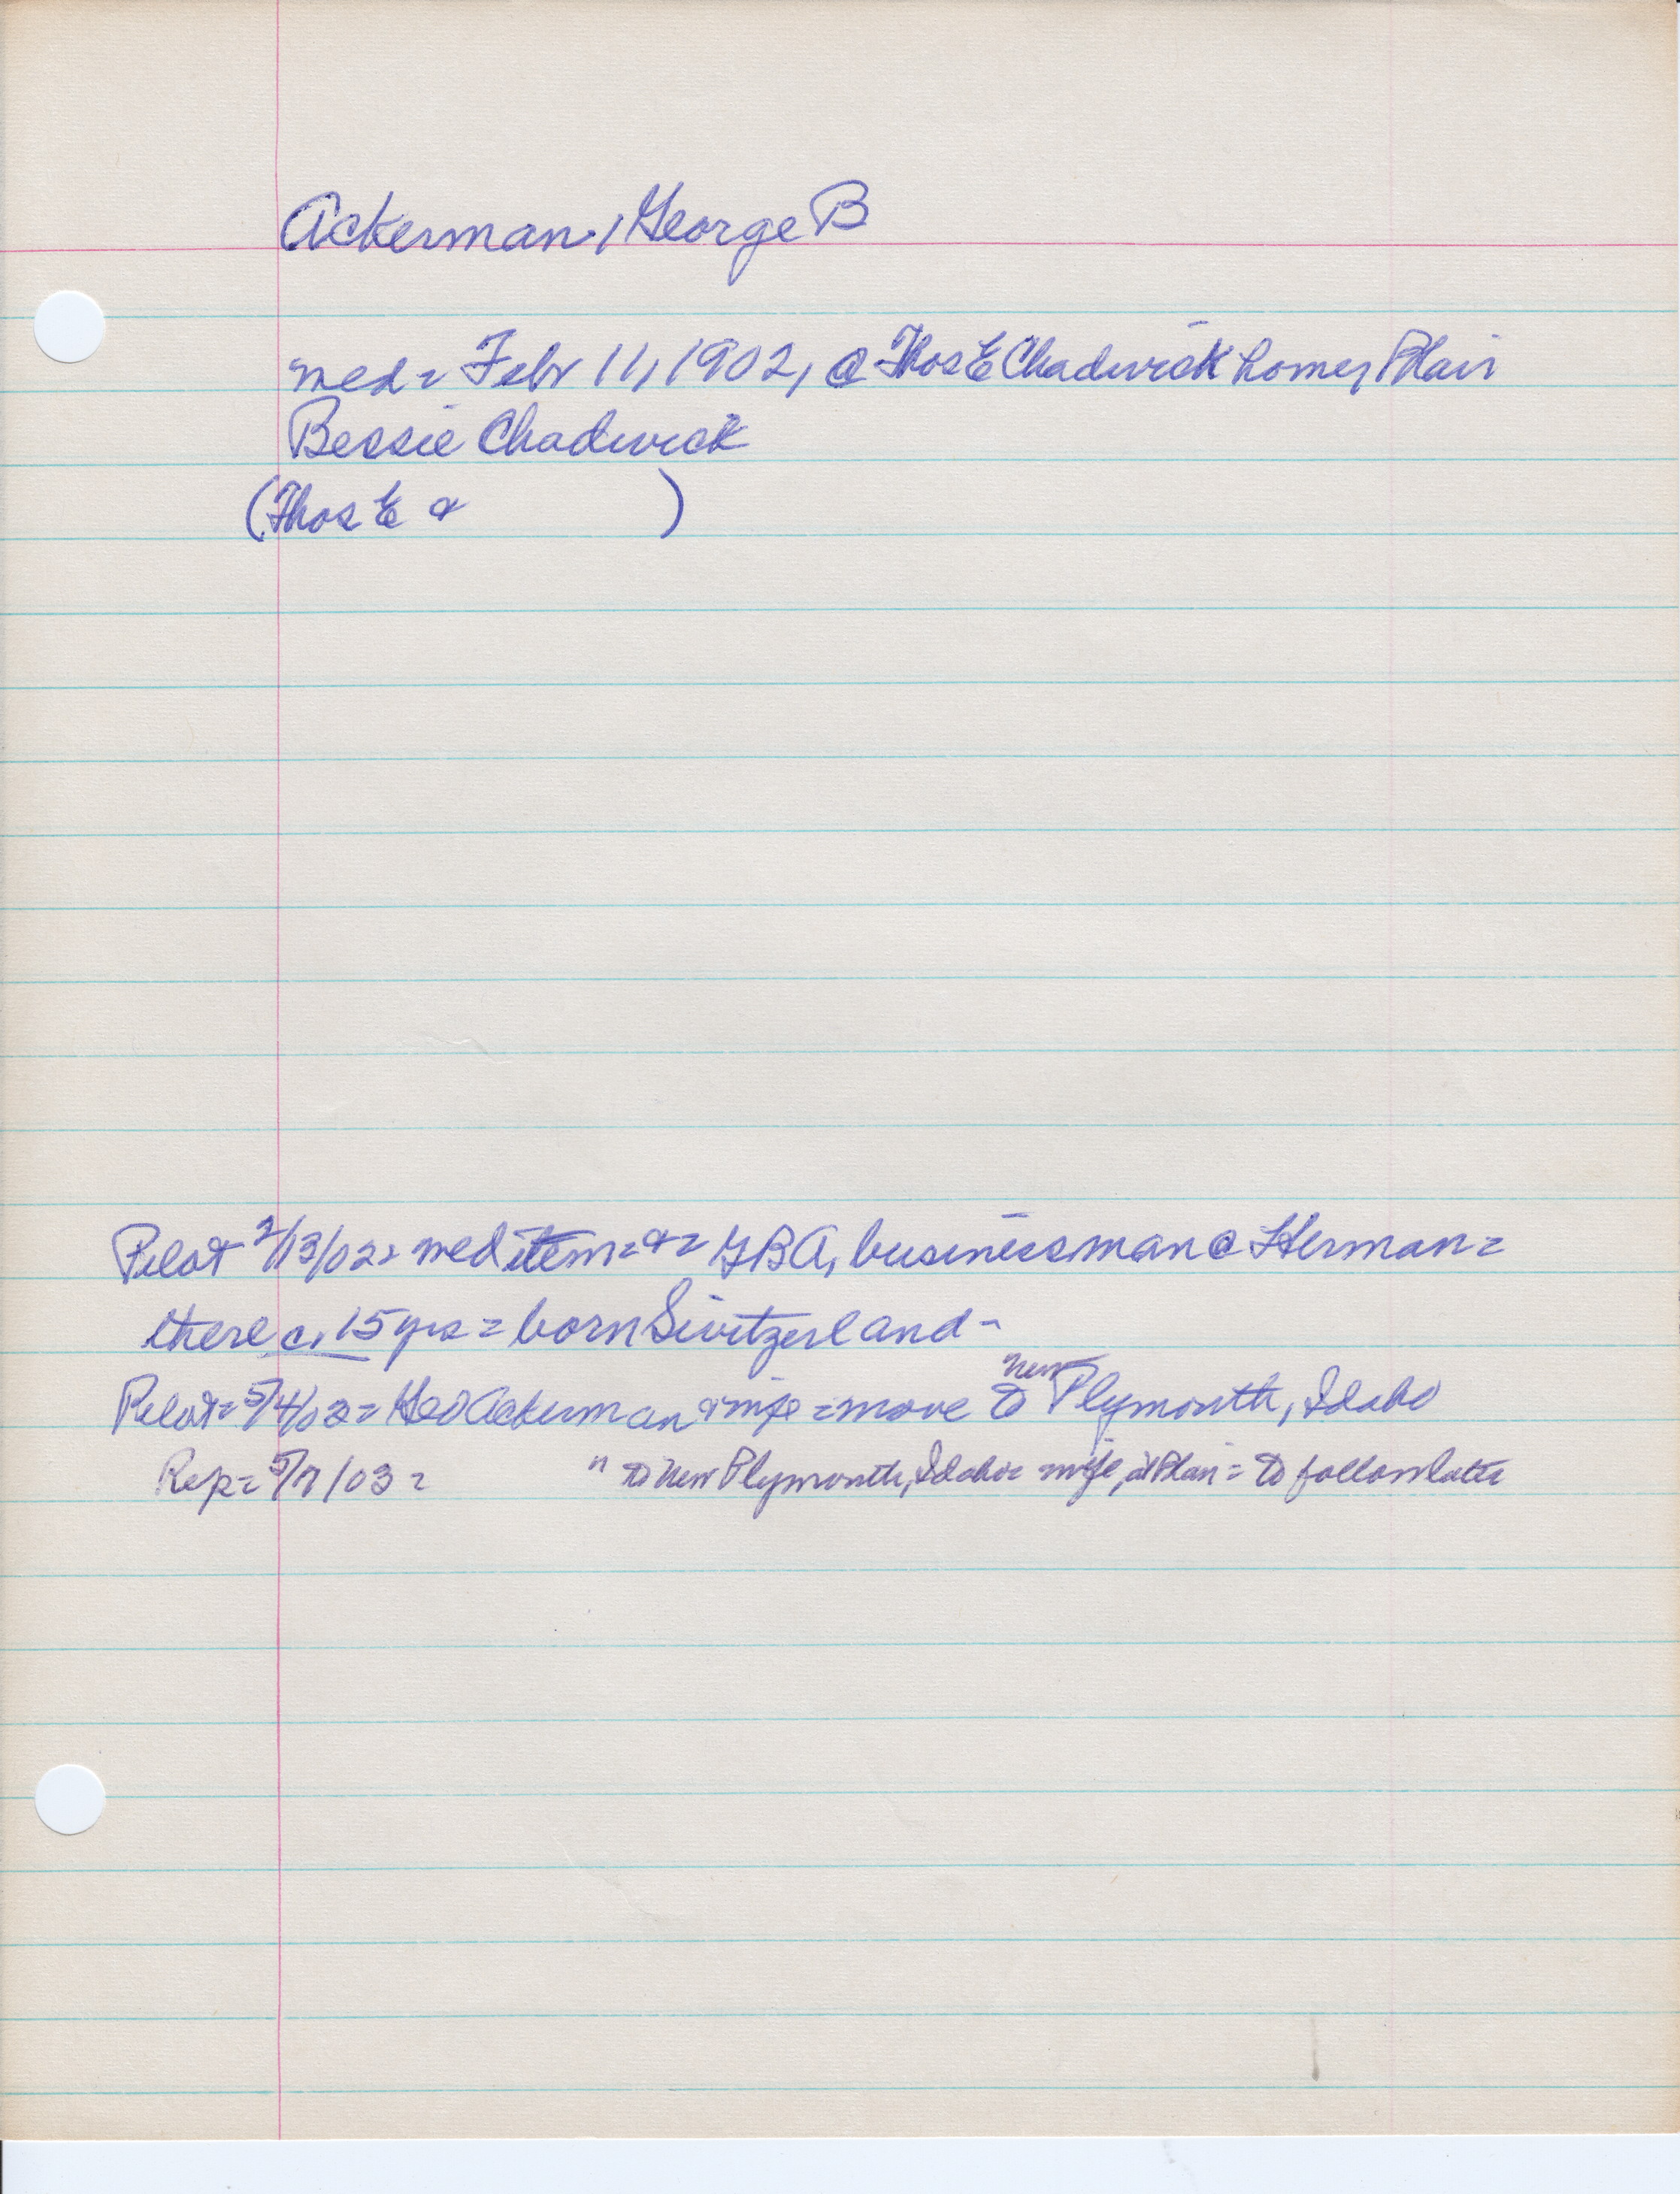 Ackerman, George B
wed = Febr 11, 1902, @ Thos E Chadwick home, Blair
Bessie Chadwick
(Thos E &        )
Pilot 2/13/02 = wed item = & = GBA, businessman @ Herman =
there c. 15 yrs = born Switzerland -
new
Pilot = 5/4/03 = Geo Ackerman & wife = move to Plymouth, Idaho
Rep = 5/7/03 =      " to New Plymouth, Idaho = wife, at Blair = to follow later